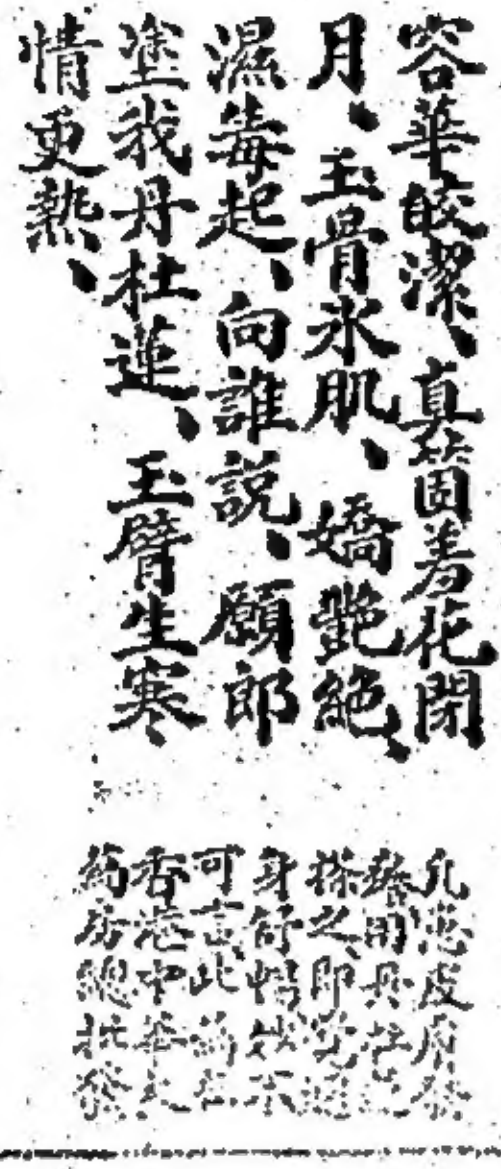 容華皎潔、真箇羞花閉
月、玉骨氷肌、嬌艷絕、
濕毒起、向誰說、願郎
塗我丹杜蓮、玉臂生寒
情更熱、
凡患皮膚發
用丹
搽之、即覺
身舒暢妙不
可言此藥
香港中華大
葯房總批發